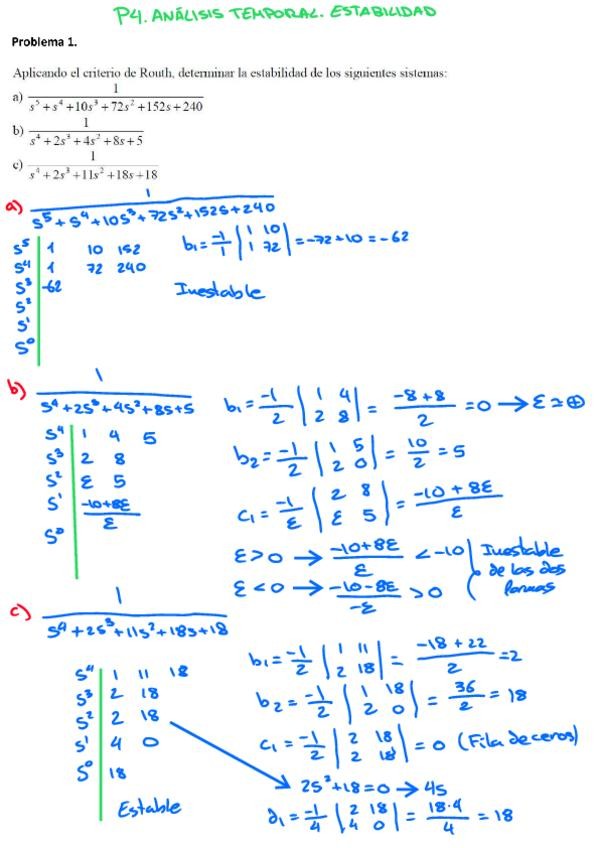 P4. ANÁLISIS TEMPORAL. ESTABILIDAD
Problema 1.
Aplicando el criterio de Routh, determinar la estabilidad de los siguientes sistemas:
a) 1 / (s⁵+s⁴+10s³+72s²+152s+240)
b) 1 / (s⁴+2s³+4s²+8s+5)
c) 1 / (s⁴+2s³+11s²+18s+18)
a) 1 / (s⁵+s⁴+10s³+72s²+152s+240)
s⁵ | 1 10 152
s⁴ | 1 72 240
s³ | -62
s²
s¹
s⁰
b₁ = -1/1 | 1 10 ; 1 72 | = -72+10 = -62
Inestable
b) 1 / (s⁴+2s³+4s²+8s+5)
s⁴ | 1 4 5
s³ | 2 8
s² | ε 5
s¹ | (-10+8ε)/ε
s⁰
b₁ = -1/2 | 1 4 ; 2 8 | = (-8+8)/2 = 0 → ε ≃ ⊕
b₂ = -1/2 | 1 5 ; 2 0 | = 10/2 = 5
c₁ = -1/ε | 2 8 ; ε 5 | = (-10+8ε)/ε
ε > 0 → (-10+8ε)/ε < -10
ε < 0 → (-10-8ε)/-ε > 0
Inestable
de las dos
formas
c) 1 / (s⁴+2s³+11s²+18s+18)
s⁴ | 1 11 18
s³ | 2 18
s² | 2 18
s¹ | 4 0
s⁰ | 18
Estable
b₁ = -1/2 | 1 11 ; 2 18 | = (-18+22)/2 = 2
b₂ = -1/2 | 1 18 ; 2 0 | = 36/2 = 18
c₁ = -1/2 | 2 18 ; 2 18 | = 0 (Fila de ceros)
2s²+18=0 → 4s
∂₁ = -1/4 | 2 18 ; 4 0 | = 18·4/4 = 18